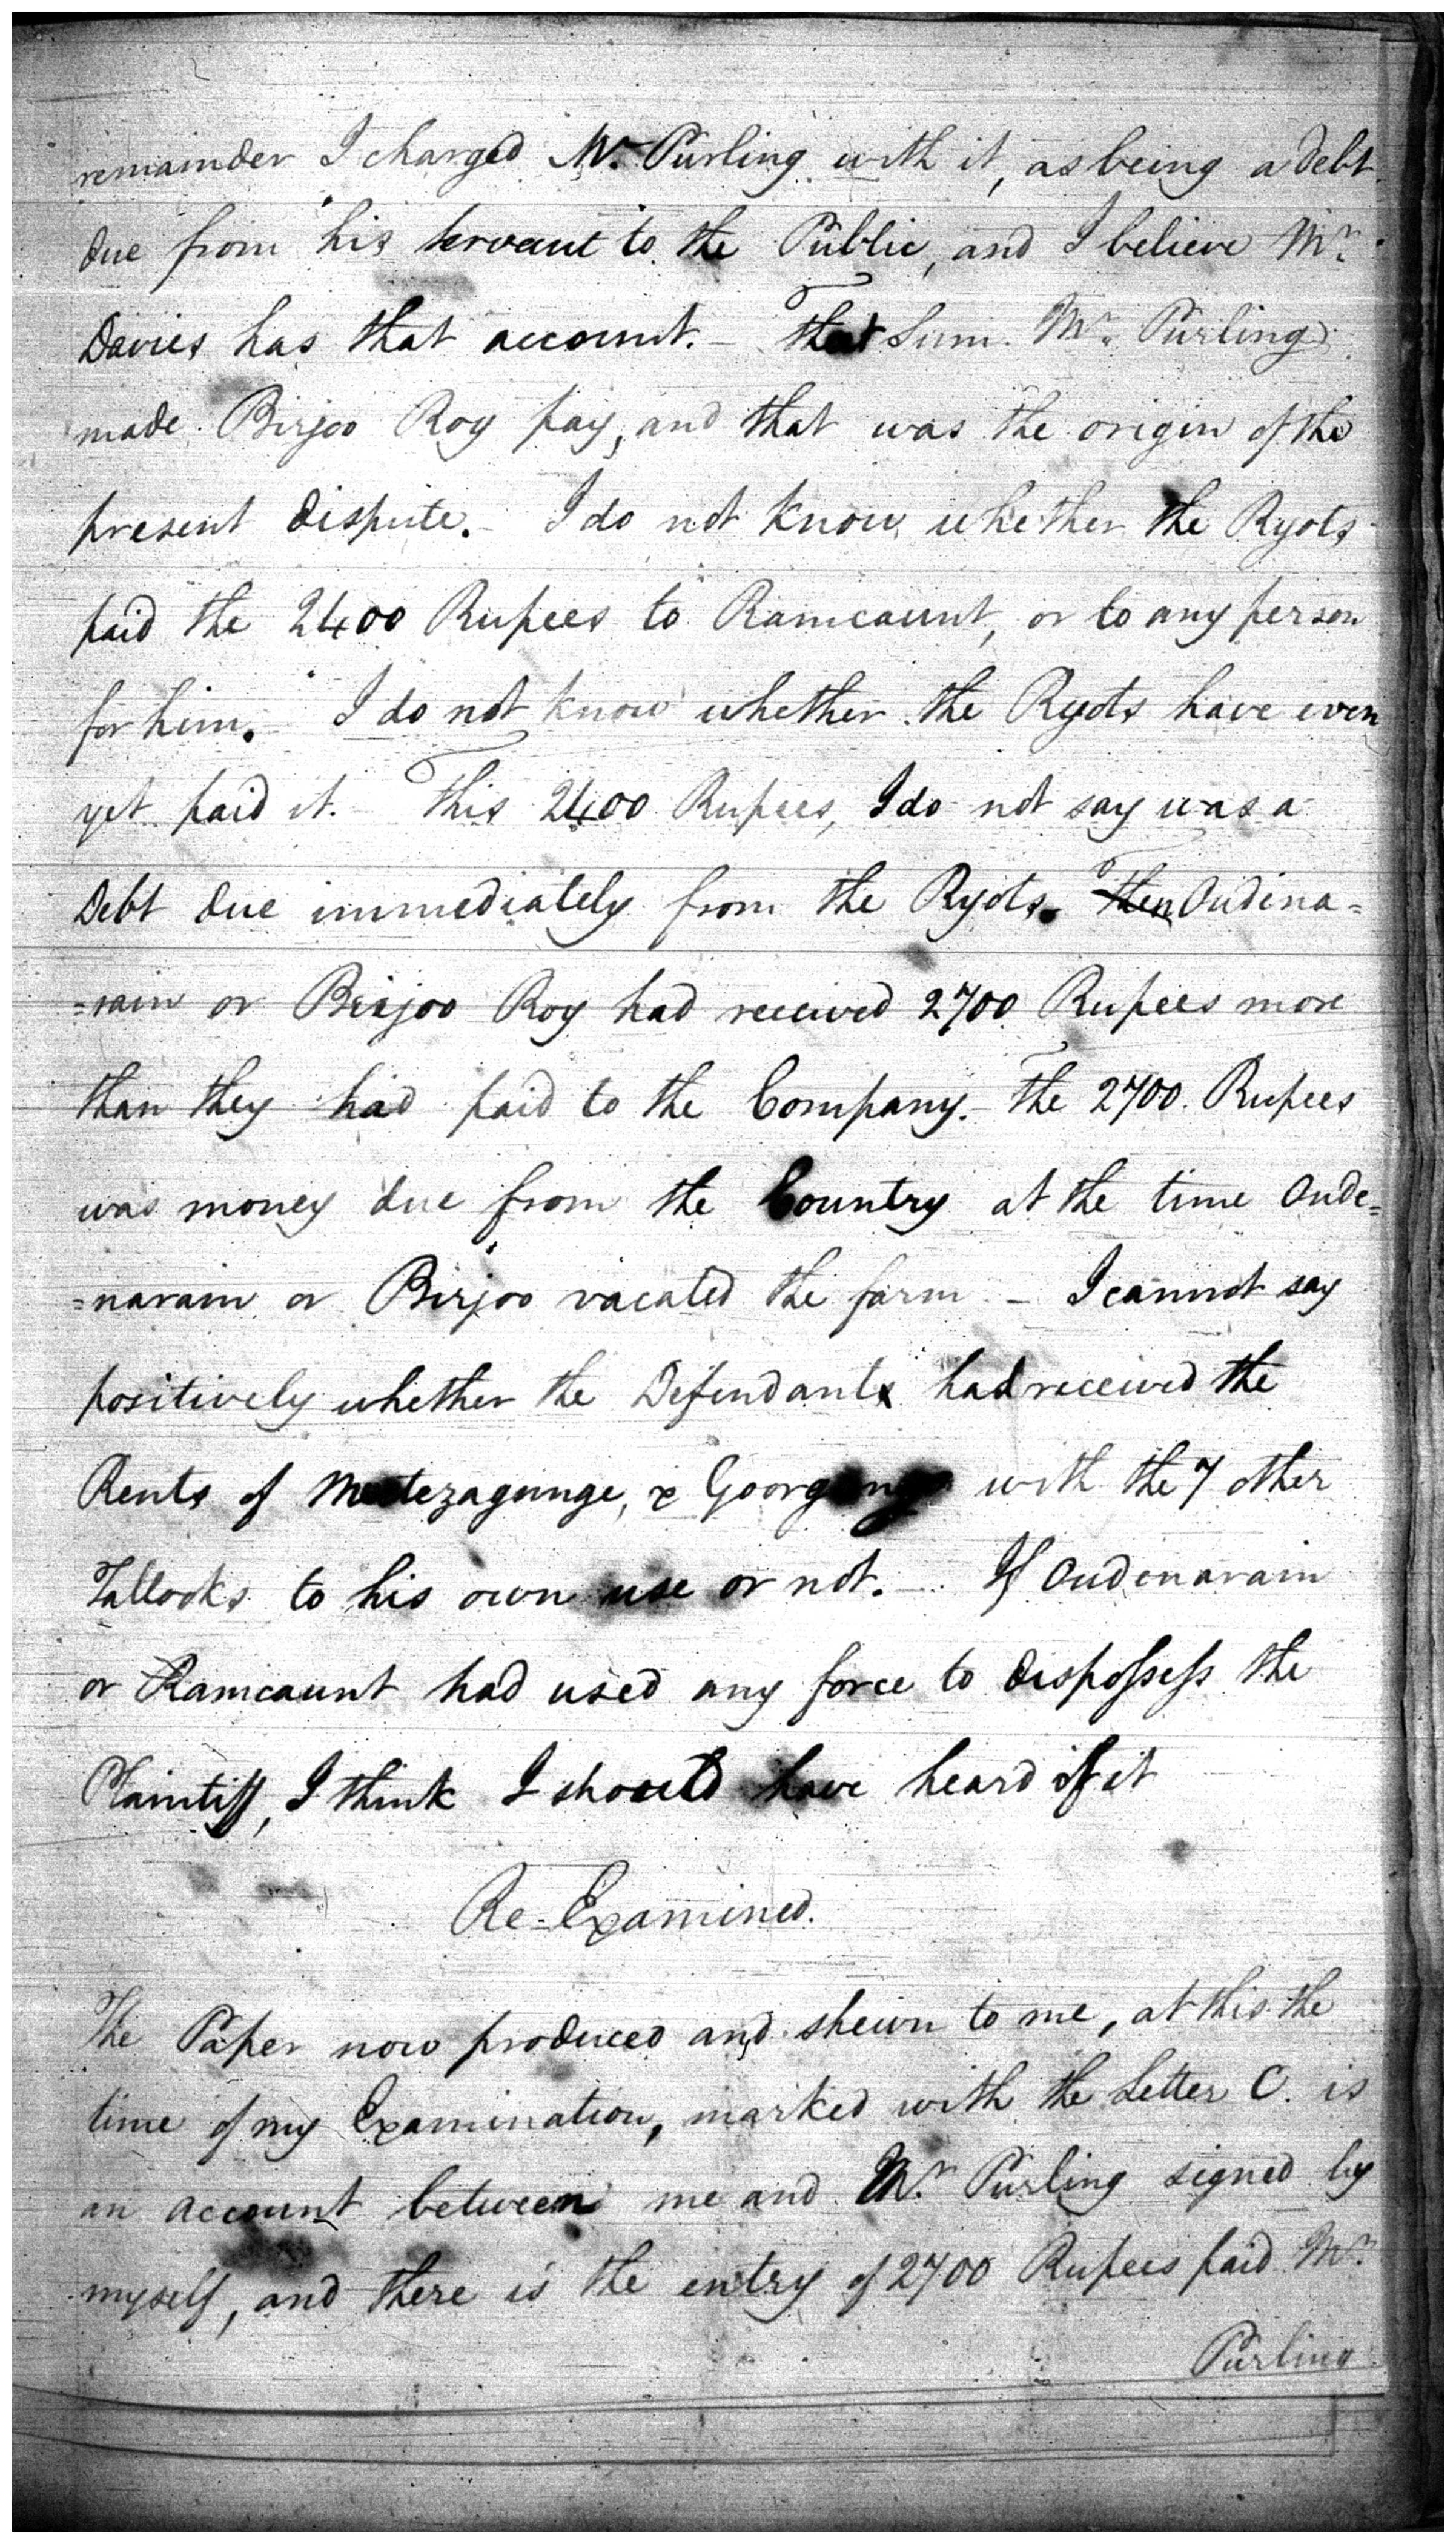 remainder I charged Mr. Purling with it, as being a debt
due from his servant to the Public, and I believe Mr.
Davies has that account. – That Sum Mr. Purling
made Birjoo Roy pay, and that was the origin of the
present dispute. – I do not know whether the Ryots
paid the 2400 Rupees to Ramcaunt, or to any person
for him. I do not know whether the Ryots have even
yet paid it. – This 2400 Rupees, I do not say was a
Debt due immediately from the Ryots. Then Oudina=
=rain or Birjoo Roy had received 2700 Rupees more
than they had paid to the Company. – The 2700 Rupees
was money due from the Country at the time Oude=
=narain or Birjoo vacated the farm – I cannot say
positively whether the Defendants had received the
Rents of & with the 7 other
Tallooks to his own use or not. – If Oudenarain
or Ramcaunt had used any force to dispossess the
Plaintiff, I think I should have heard of it
Re-Examined.
The Paper now produced and shewn to me, at this the
time of my Examination, marked with the Letter C. is
an account between me and Mr. Purling signed by
myself, and there is the entry of 2700 Rupees paid Mr.
Purling